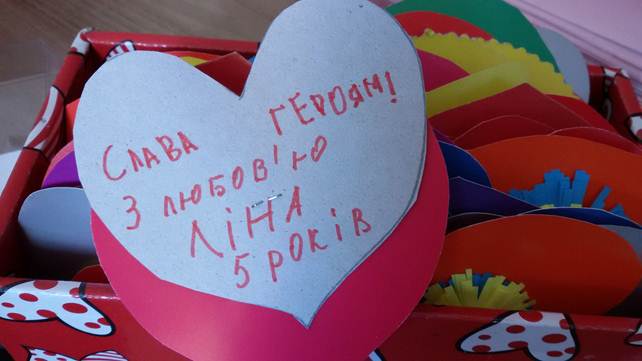 СЛАВА ГЕРОЯМ!
З ЛЮБОВ'Ю
ЛІНА
5 РОКІВ